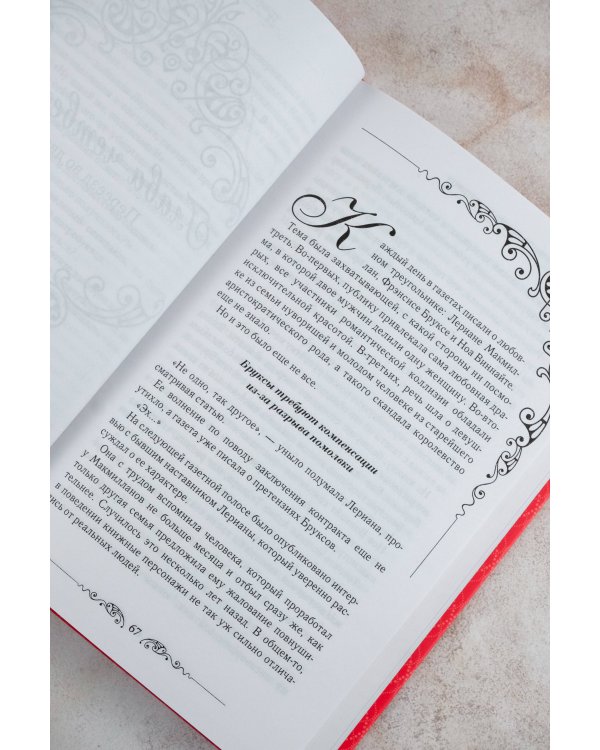 Каждый день в газетах писали о любов-
ном треугольнике: Лериане Макмил-
лан, Фрэнсисе Бруксе и Ноа Виннайте.
Тема была захватывающей, с какой стороны ни посмо-
треть. Во-первых, публику привлекала сама любовная дра-
ма, в которой двое мужчин делили одну женщину. Во-вто-
рых, все участники романтической коллизии обладали
исключительной красотой. В-третьих, речь шла о девуш-
ке из семьи нуворишей и молодом человеке из старейшего
аристократического рода, а такого скандала королевство
еще не знало.
Но и это было еще не все.
Бруксы требуют компенсации
из-за разрыва помолвки
«Не одно, так другое», — уныло подумала Лериана, про-
сматривая статью.
«Эх...»
Ее волнение по поводу заключения контракта еще не
утихло, а газета уже писала о претензиях Бруксов.
На следующей газетной полосе было опубликовано интер-
вью с бывшим наставником Лерианы, который уверенно рас-
суждал о ее характере.
Она с трудом вспомнила человека, который проработал
у Макмилланов не больше месяца и отбыл сразу же, как
только другая семья предложила ему жалование повнуши-
тельнее. Случилось это несколько лет назад. В общем-то,
в поведении книжные персонажи не так уж сильно отлича-
лись от реальных людей.
67